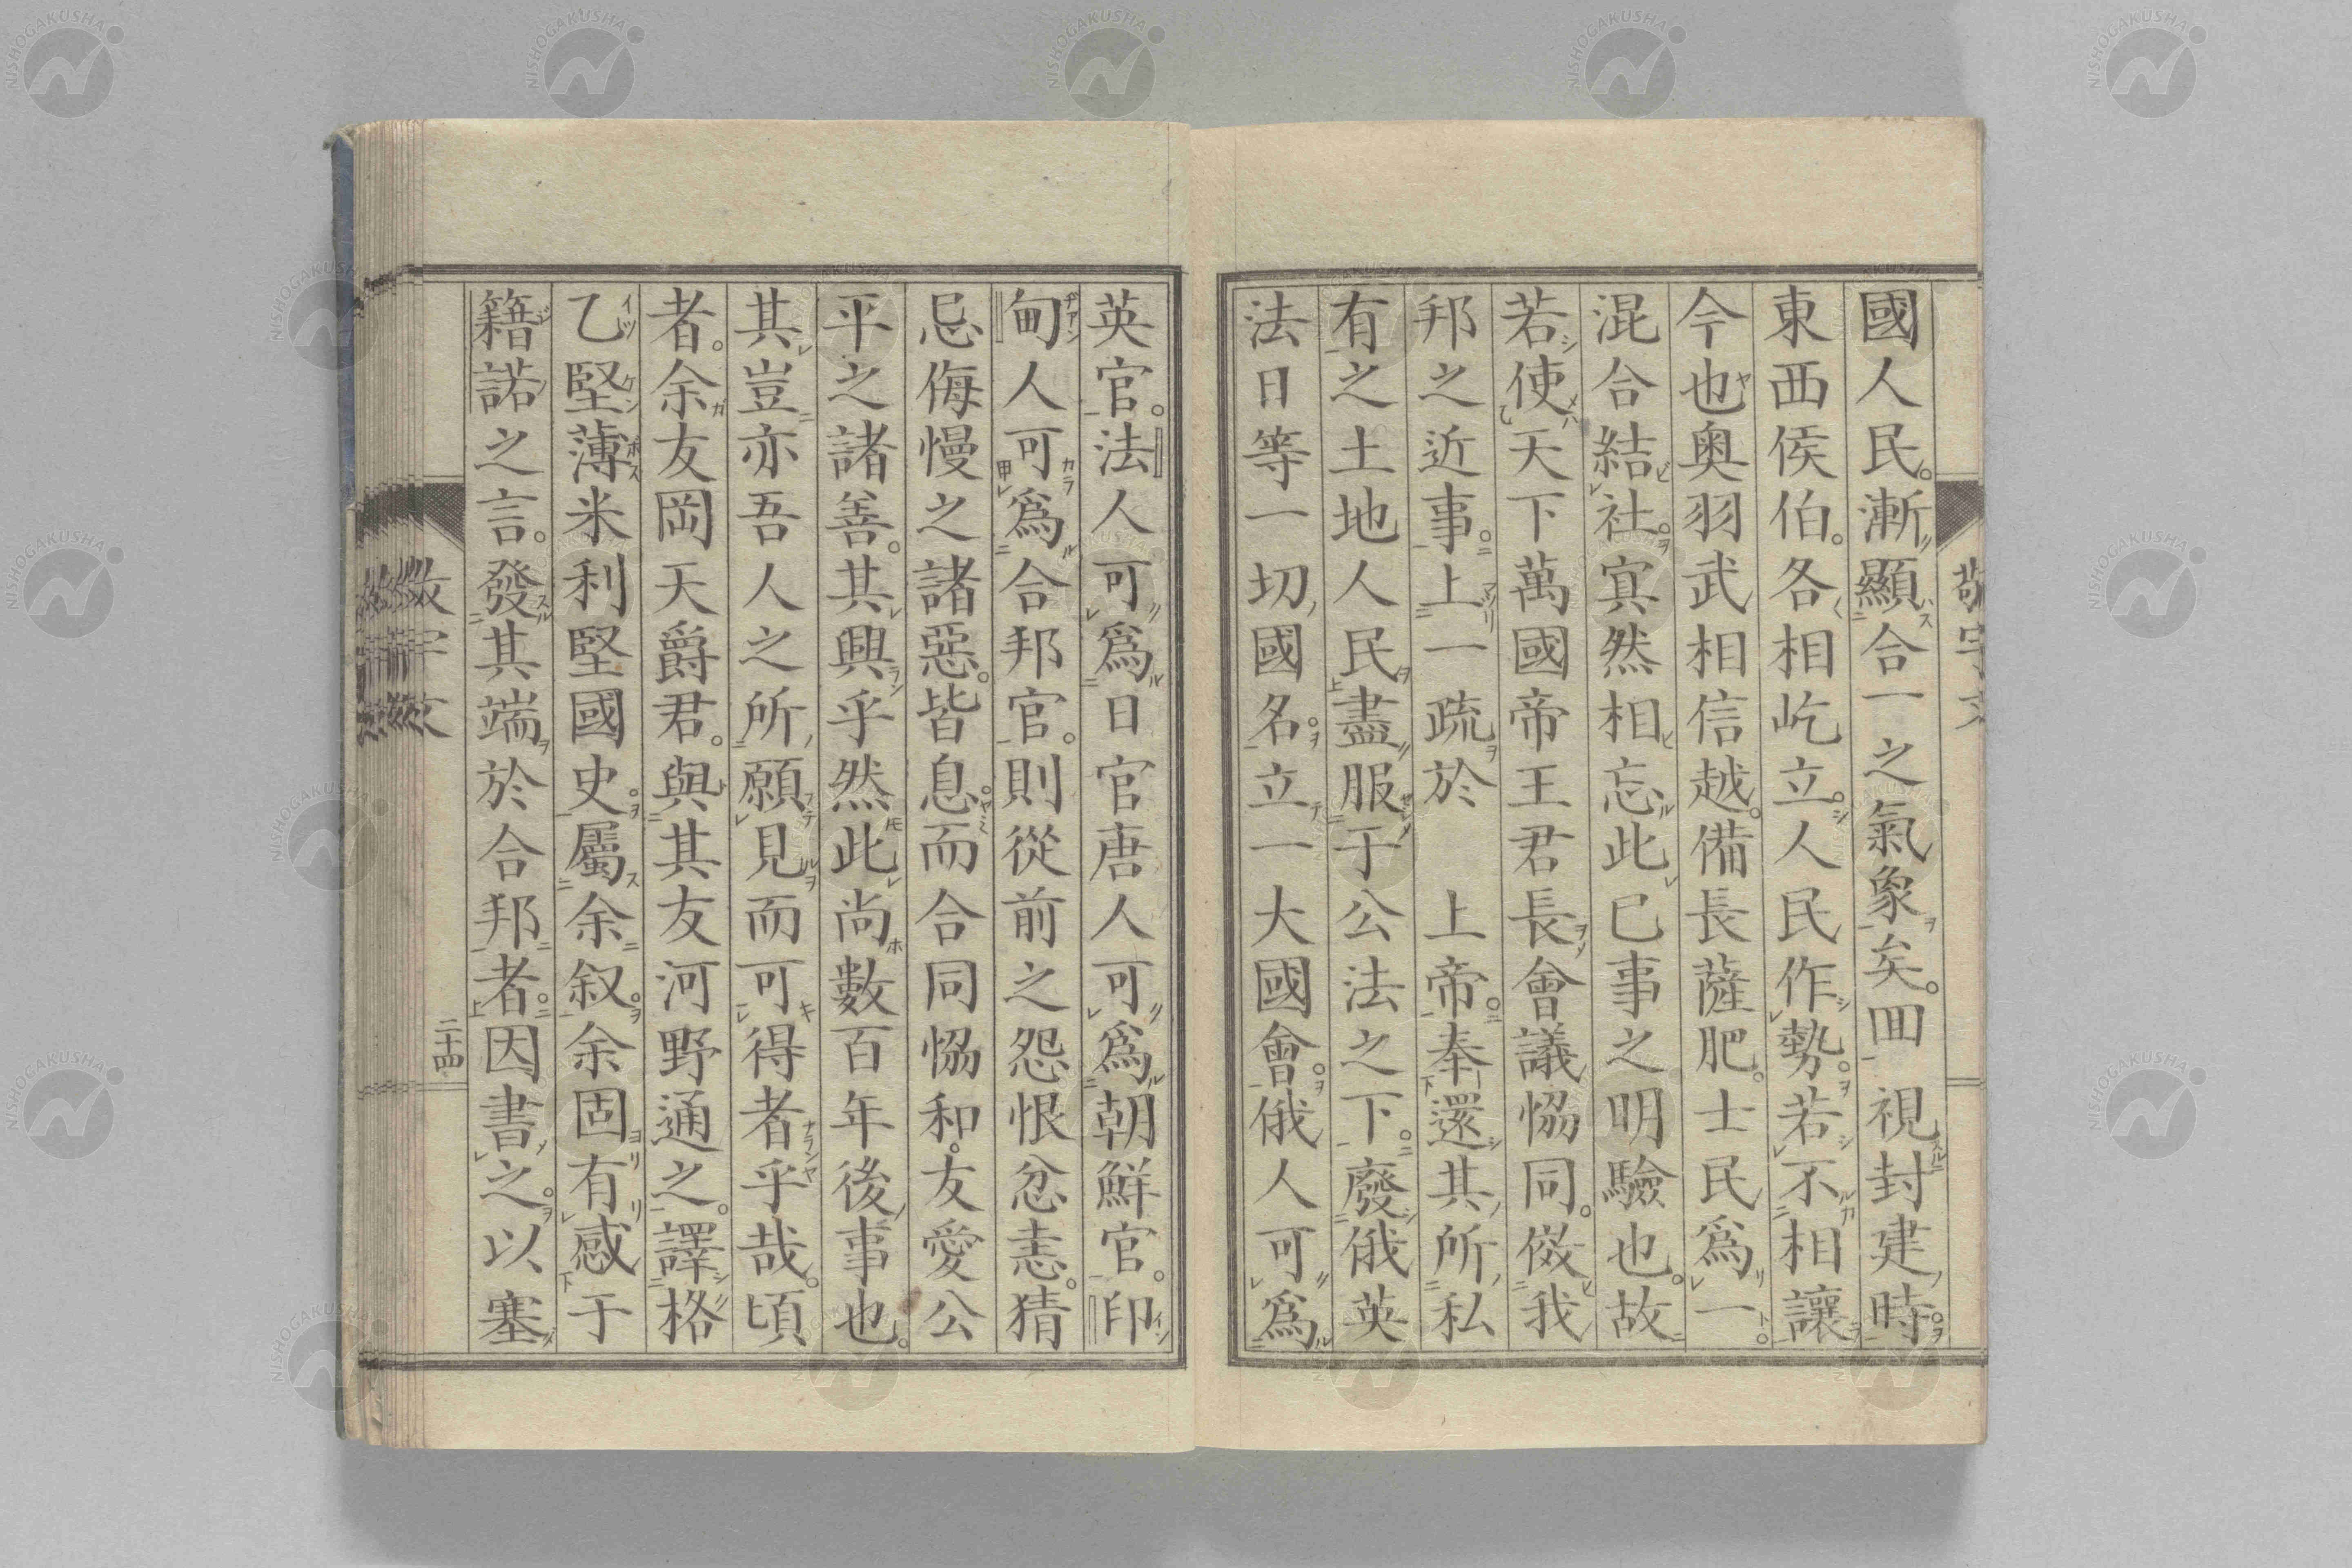 國人民。漸顯合一之氣象矣。回視封建時。
東西侯伯。各相屹立。人民作勢。若不相讓
今也奧羽武相信越。備長薩肥。士民爲一。
混合結社。寘然相忘此已事之明驗也。故
若使天下萬國帝王君長。會議恊同。倣我
邦之近事。上一疏於　上帝。奉還其所私
有之土地人民盡服于公法之下。廢俄英
法日等一切國名。立一大國會。俄人可爲
英官。法人可爲日官唐人可爲朝鮮官。印
甸人可爲合邦官。則從前之怨恨忿恚。猜
忌侮慢之諸惡。皆息。而合同恊和。友愛公
平之諸善。其興乎然此尚數百年後事也。
其豈亦吾人之所願見而可得者乎哉。頃
者。余友岡天爵君。與其友河野通之。譯格
乙堅薄米利堅國史。屬余叙。余固有感于
籍諾之言。發其端於合邦者。因書之。以塞
敬宇文
二十四
NISHOGAKUSHA